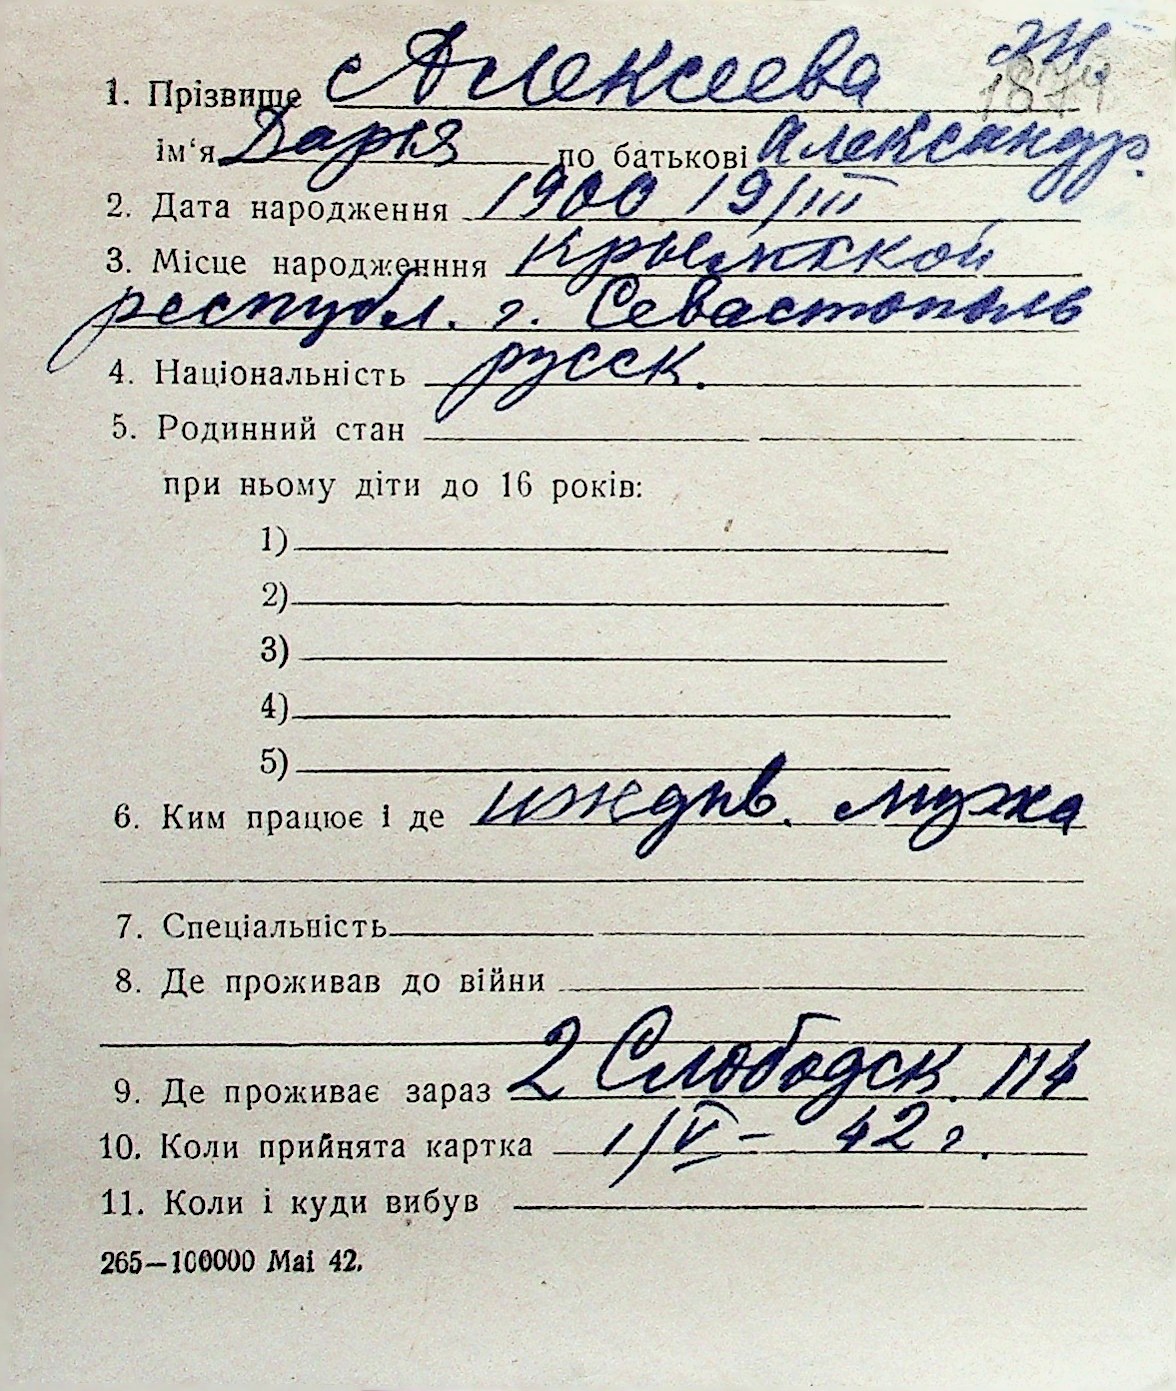 1. Прізвище Алексеева ж.
1874
ім‘я Дарія по батькові Александр.
2. Дата народження 1900 19/III
3. Місце народженння Крымской
республ. г. Севастополь
4. Національність русск.
5. Родинний стан
при ньому діти до 16 років:
1)
2)
3)
4)
5)
6. Ким працює і де иждив. мужа
7. Спеціальність
8. Де проживав до війни
9. Де проживає зараз 2 Слободск. 114
10. Коли прийнята картка 1/V – 42 г.
11. Коли і куди вибув
265—100000 Mai 42.